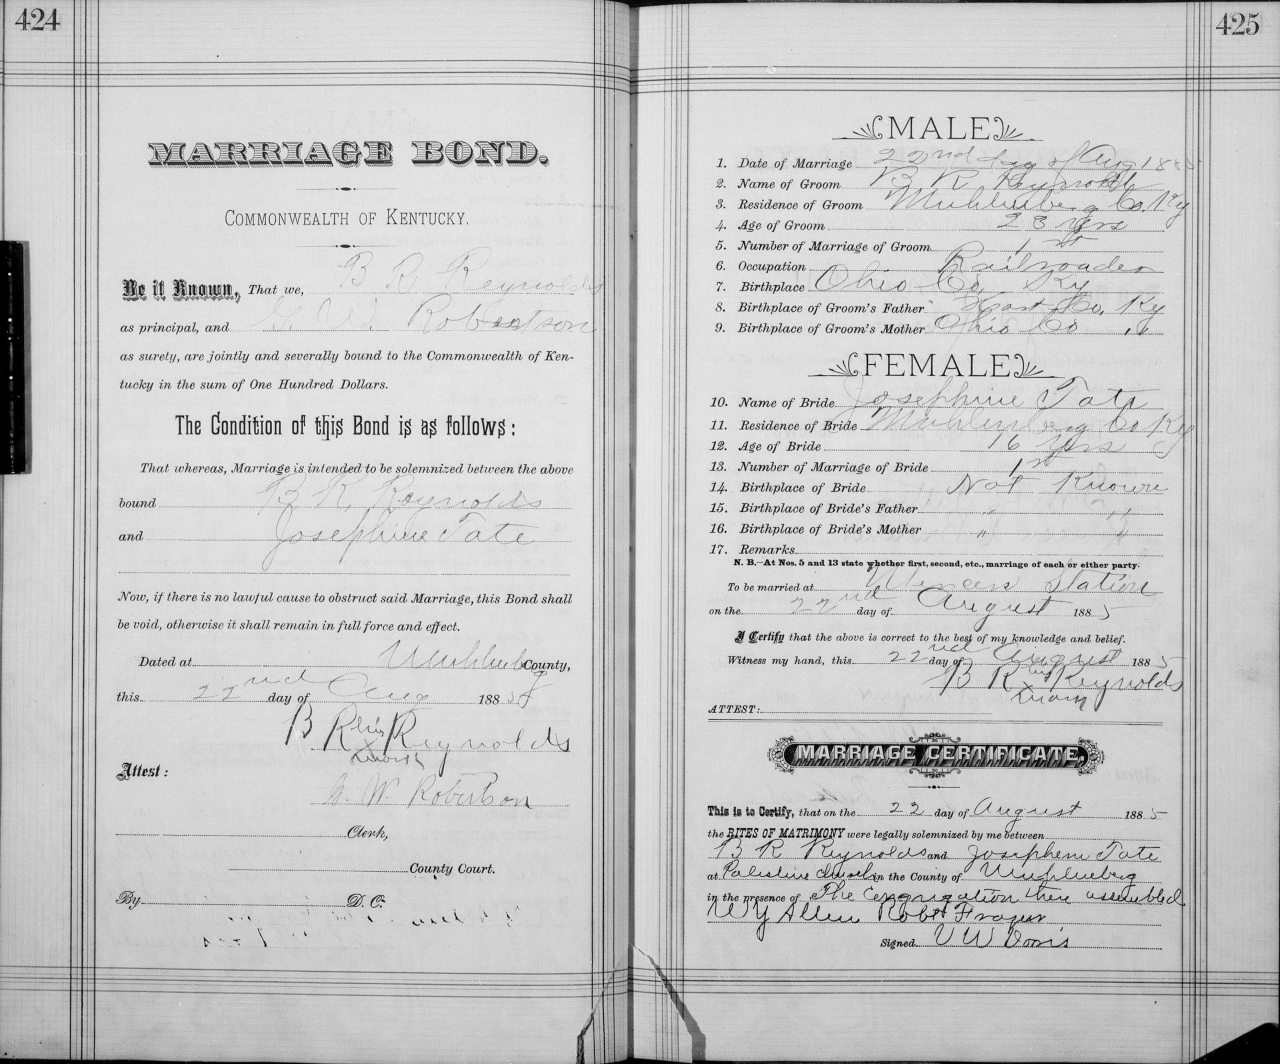 424
MARRIAGE BOND.
COMMONWEALTH OF KENTUCKY.
Be it Known, That we, B R Reynolds
as principal, and G. W. Robertson
as surety, are jointly and severally bound to the Commonwealth of Ken-
tucky in the sum of One Hundred Dollars.
The Condition of this Bond is as follows:
That whereas, Marriage is intended to be solemnized between the above
bound B R Reynolds
and Josephine Tate
Now, if there is no lawful cause to obstruct said Marriage, this Bond shall
be void, otherwise it shall remain in full force and effect.
Dated at Muhlenberg County,
this 22nd day of Aug 1885
B R his Reynolds
X mark
Attest:
G. W. Robertson
Clerk,
County Court.
By D. C.
425
MALE
1. Date of Marriage 22nd day of Aug 1885
2. Name of Groom B R Reynolds
3. Residence of Groom Muhlenberg Co. Ky
4. Age of Groom 23 yrs
5. Number of Marriage of Groom 1st
6. Occupation Railroader
7. Birthplace Ohio Co. Ky
8. Birthplace of Groom's Father Hart Co. Ky
9. Birthplace of Groom's Mother Ohio Co "
FEMALE
10. Name of Bride Josephine Tate
11. Residence of Bride Muhlenberg Co Ky
12. Age of Bride 16 yrs
13. Number of Marriage of Bride 1st
14. Birthplace of Bride Not Known
15. Birthplace of Bride's Father " "
16. Birthplace of Bride's Mother " "
17. Remarks
N. B.—At Nos. 5 and 13 state whether first, second, etc., marriage of each or either party.
To be married at Mercers Station
on the 22nd day of August 1885
I Certify that the above is correct to the best of my knowledge and belief.
Witness my hand, this 22nd day of August 1885
B R his Reynolds
X mark
ATTEST:
MARRIAGE CERTIFICATE.
This is to Certify, that on the 22 day of August 1885
the RITES OF MATRIMONY were legally solemnized by me between
B R Reynolds and Josephem Tate
at Palestine church in the County of Muhlenberg
in the presence of The Congregation there assembled
W Y Allen Robt Frazer
Signed V W